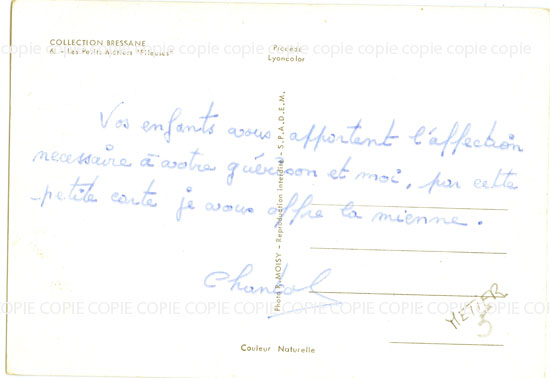 COLLECTION BRESSANE
Les Petits Métiers "Fileuses"
Procédé
Lyoncolor
COPIE COPIE COPIE COPIE COPIE COPIE COPIE COPIE COPIE COPIE COPIE COPIE
Vos enfants vous apportent l'affection
necessaire à votre guérison et moi, par cette
petite carte je vous offre la mienne.
Chantal
Photo R. MOISY - Reproduction Interdite - S.P.A.D.E.M.
COPIE COPIE COPIE COPIE COPIE COPIE COPIE COPIE COPIE COPIE COPIE COPIE
METIER
5
Couleur Naturelle